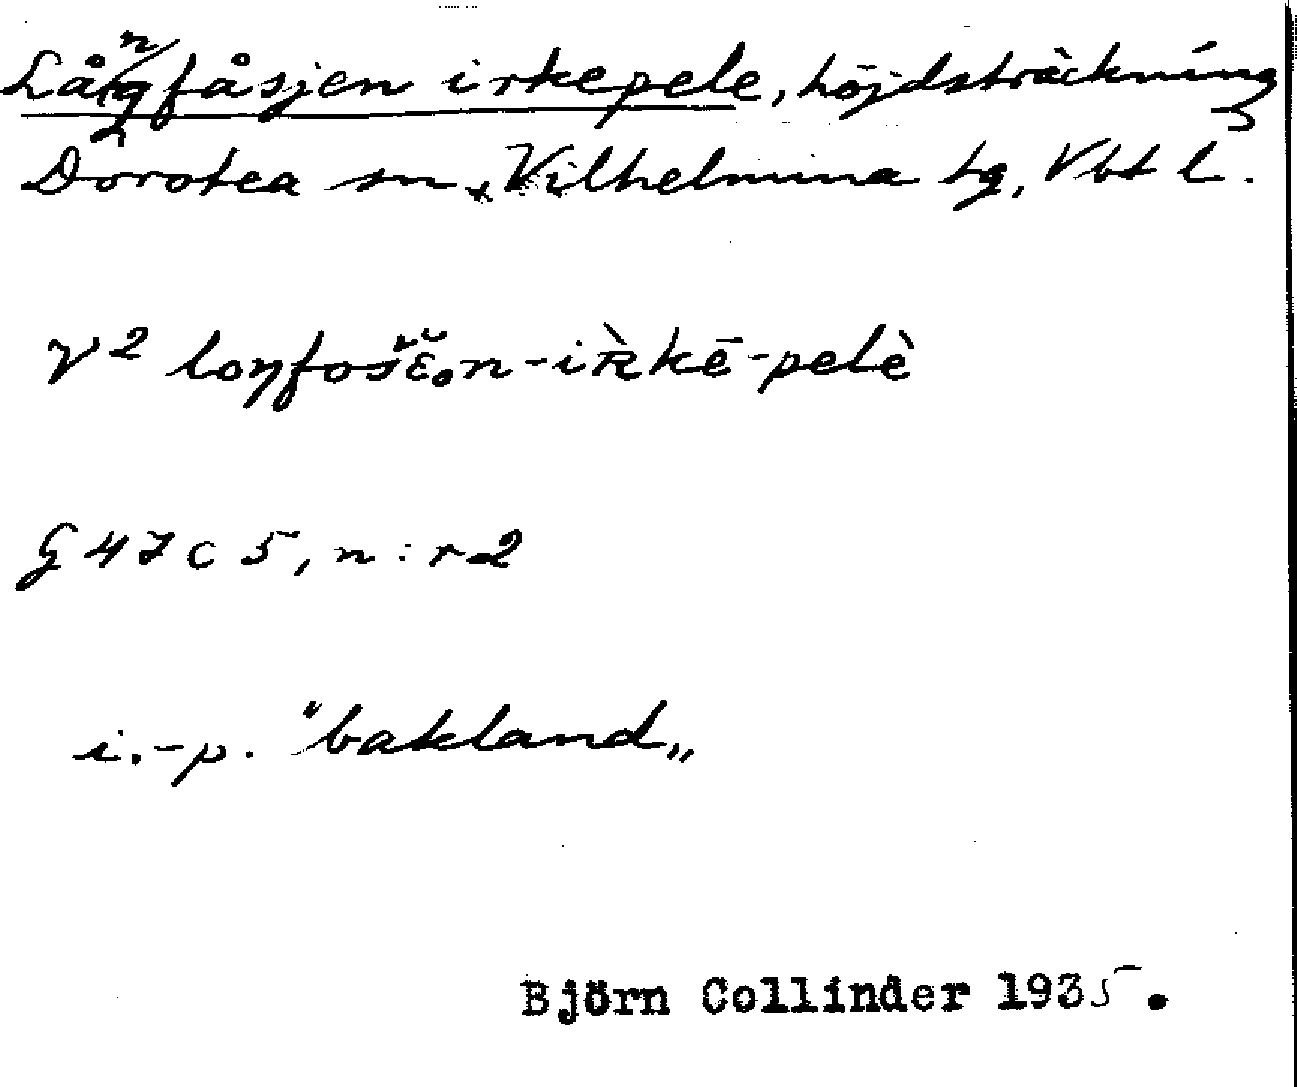 Långfåsjen irkepele, höjdsträckning
Dorotea sn, Vilhelmina tg, Vbt l.
V² loŋfošɛ̆n-iʀ̀kē-pelè
G 47 c 5, n:r 2
i.-p. "bakland„
Björn Collinder 1935.